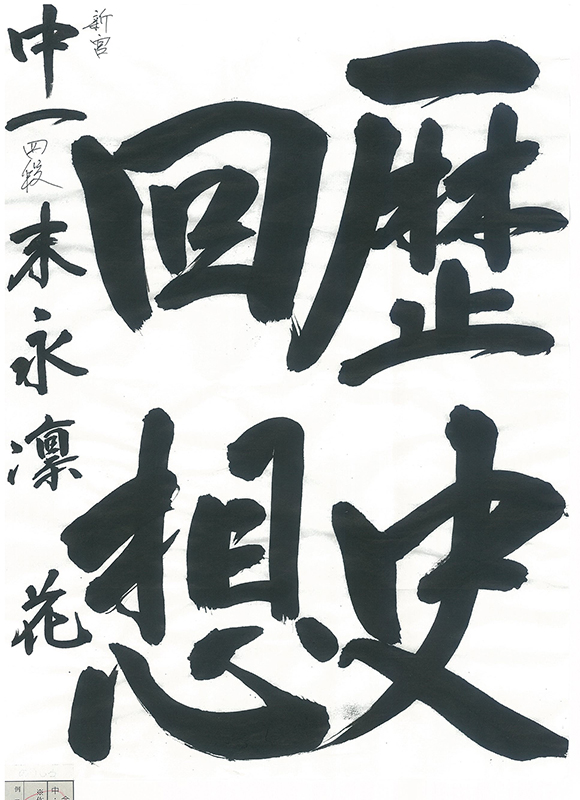 歴史
回想
新宮
中一 四段 末永凛花